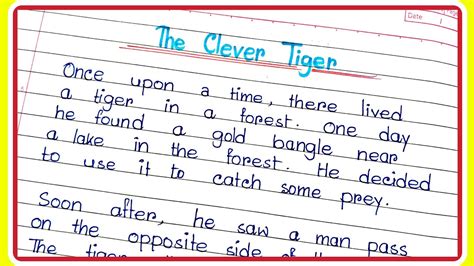 Date
The Clever Tiger
Once upon a time, there lived
a tiger in a forest. One day
he found a gold bangle near
a lake in the forest. He decided
to use it to catch some prey.
Soon after, he saw a man pass
on the opposite side of
The tiger